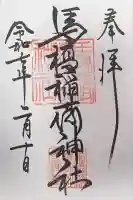 奉拝
馬橋稲荷神社
令和年二月十日